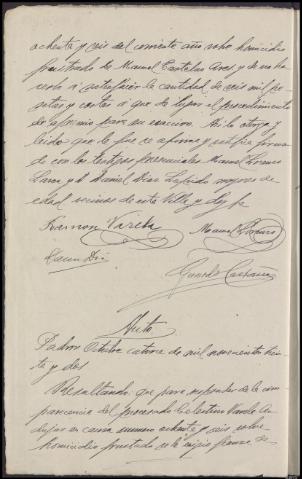 ochenta y seis del corriente año sobre homicidio
frustrado de Manuel Castelas Aneos y de no ha
serlo a satisfacer la cantidad de seis mil pe
setas y costas a que de lugar el procedimiento
de apremio para su exaccion. Asi lo otorga y
leido que le fue se afirma y ratifica firman
do con los testigos presenciales Manuel Lorenzo
y D. Daniel Dias mayores de
edad vecinos de esta Villa y doy fe
Ramon Varela Manuel Lorenzo
Daniel Dias
Gumersindo
Auto
Padron Octubre catorce de mil novecientos trein
ta y dos
Resultando que para responder de la com
parecencia del procesado Celestino Varela An
en causa numero ochenta y seis sobre
homicidio frustrado se le exijio fianza de